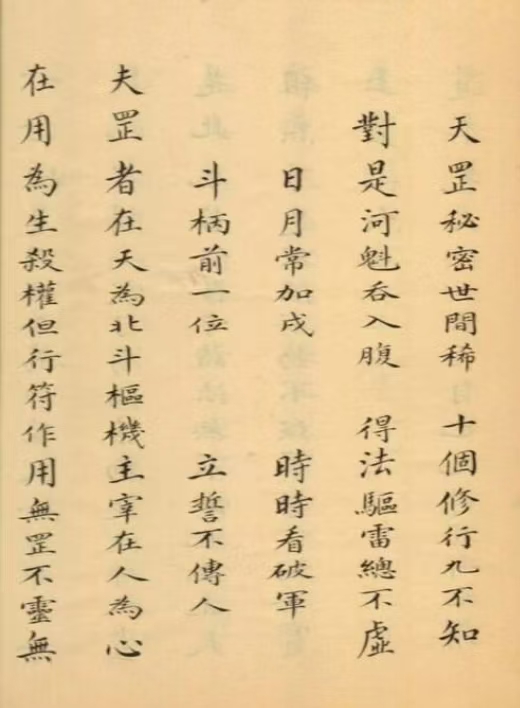 天罡秘密世間稀　十個修行九不知
對是河魁吞入腹　得法驅雷總不虛
日月常加戌　時時看破軍
斗柄前一位　立誓不傳人
夫罡者在天為北斗樞機主宰在人為心
在用為生殺權但行符作用無罡不靈無